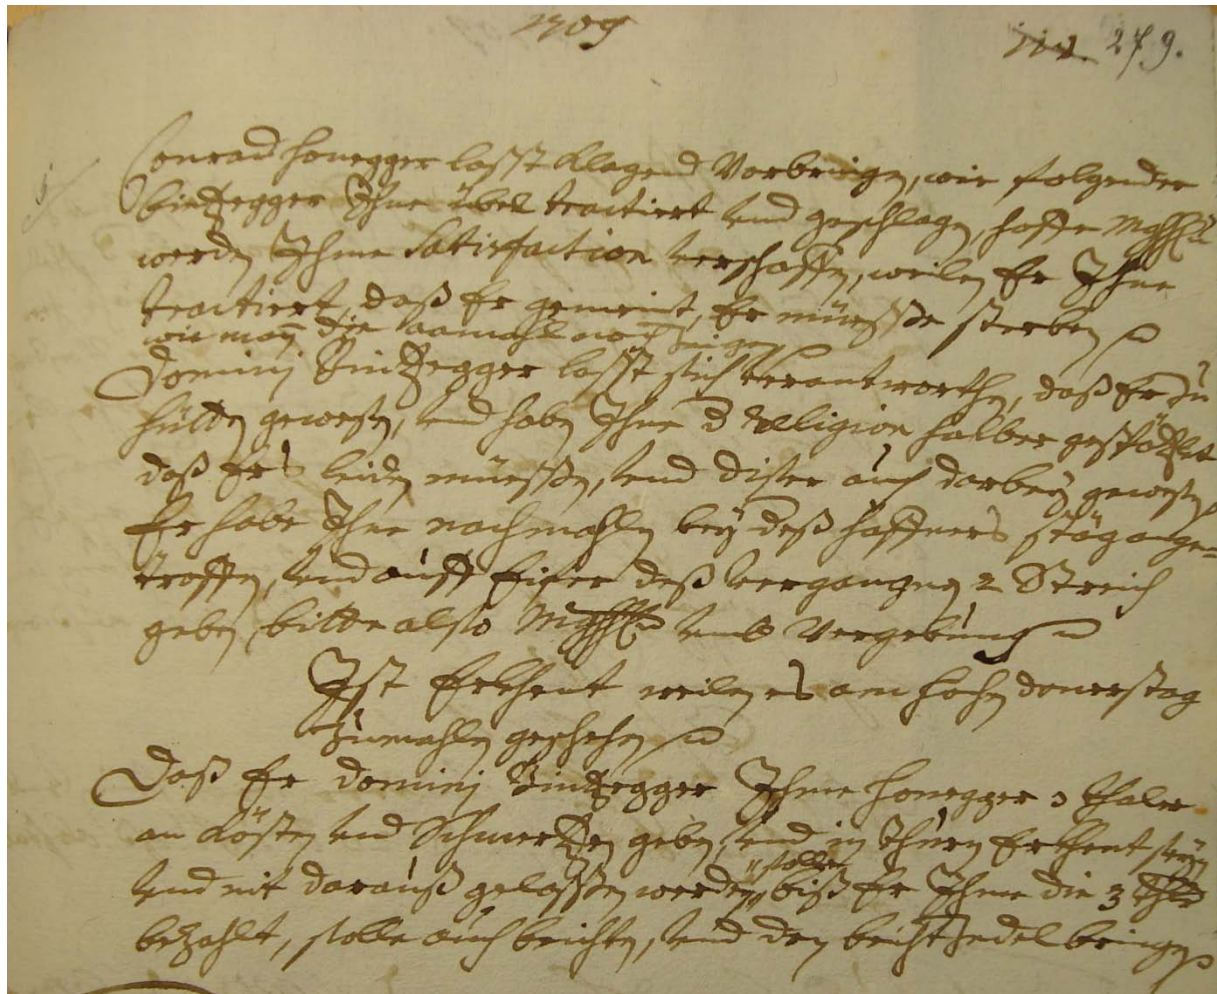 1709
112 279.
Conrad Honegger lasst klagend Vorbringen, wie folgender
Bintzegger Ihne übel tractiert und geschlagen, hoffe MghH
werden Ihme Satisfaction verschaffen, weilen Er Ihne
tractiert, daß Er gemeint, Er müessße sterben
wie man die aamahl noch
Dominj Bintzegger lasst sich verantworthen, daß Er zu
Hütten gewesen, und haben Ihne d Religion halber gestöcklet
daß Ers leiden müessßen, und diser auch darbey gewesen
Er habe Ihne nachmahlen bey deß Haffners stäg ange-
troffen, und auff Eifer deß vergangnen 2 Streich
geben, bitte also MghH umb Vergebung
Ist Erkhent weilen es am hohen donerstag
Zumahlen geschehen
Daß Er Dominj Bintzegger Ihme Honegger 3 thaler
an Kösten und Schmertzen geben, und in thurn Erkhent seyn
solle
und nit darauß gelasßen werden, biß Er Ihme die 3 thlr
bezahlt, solle auch beichten, und den beichtzedel bringen